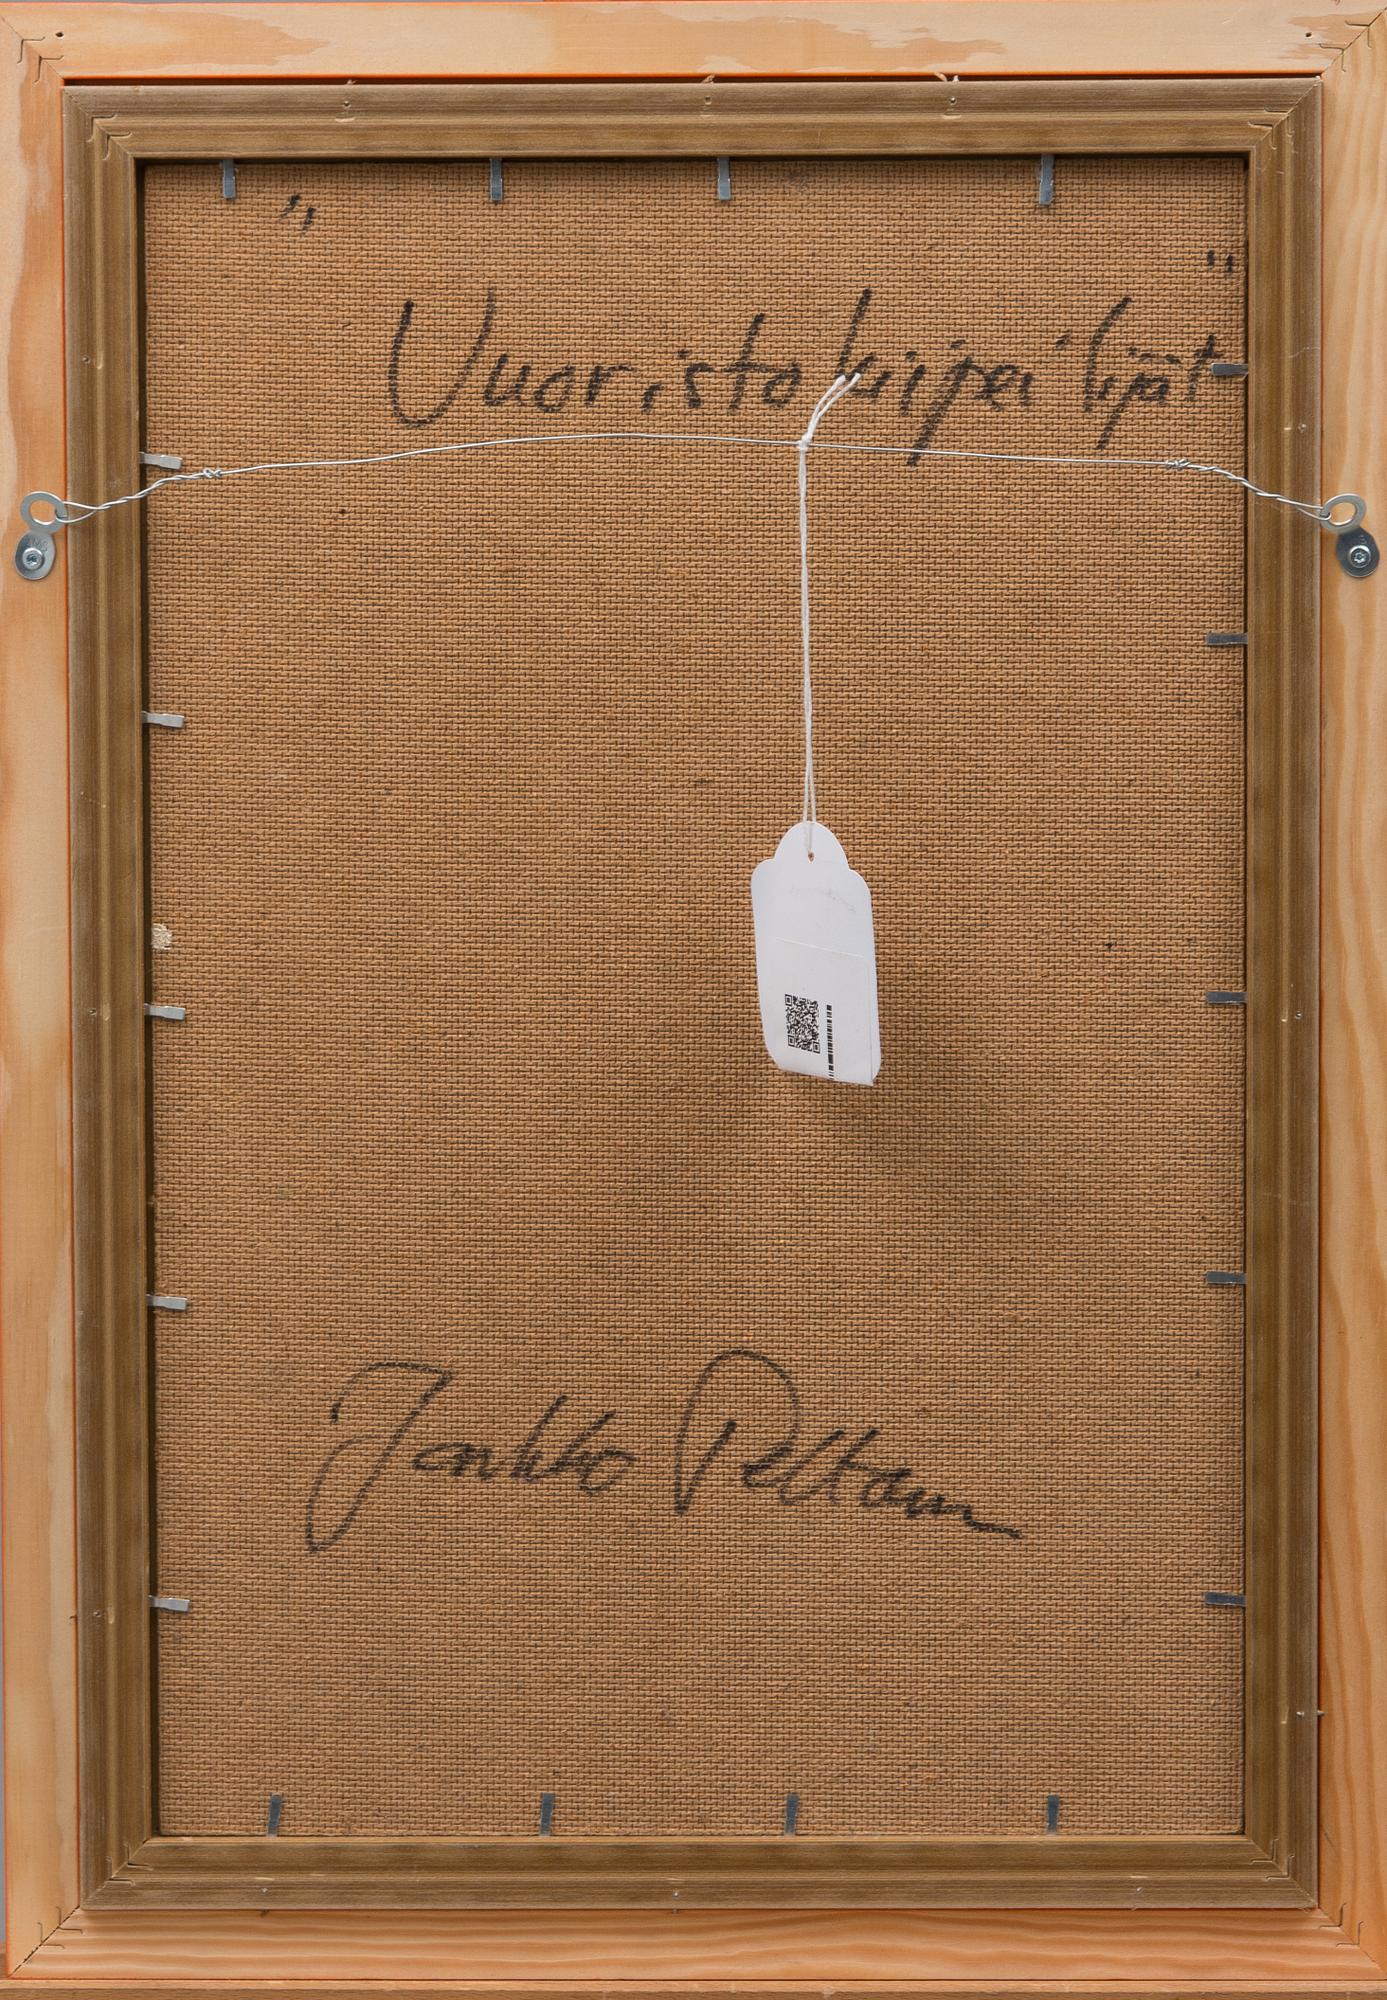 "Vuoristokiipeilijät"
Jonkko Peltam